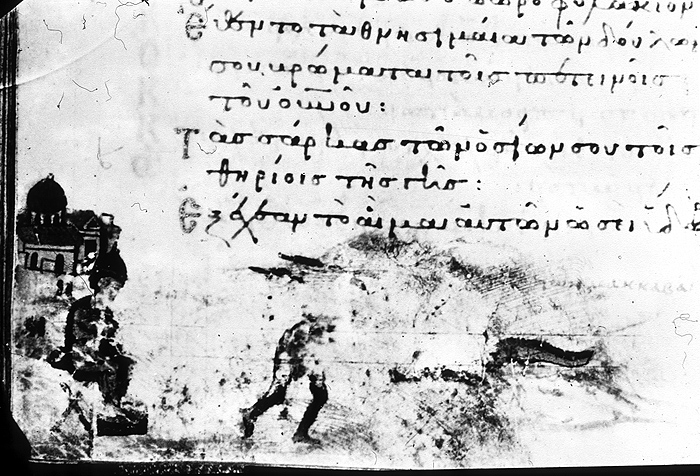 ὀπωροφυλάκιον
Ἔθεντο τὰ θνησιμαῖα τῶν δούλων
σου βρώματα τοῖς πετεινοῖς
τοῦ οὐνοῦ:
Τὰς σάρκας τῶν ὁσίων σου τοῖς
θηρίοις τῆς γῆς:
Ἐξέχεαν τὸ αἷμα αὐτῶν ὡσεὶ